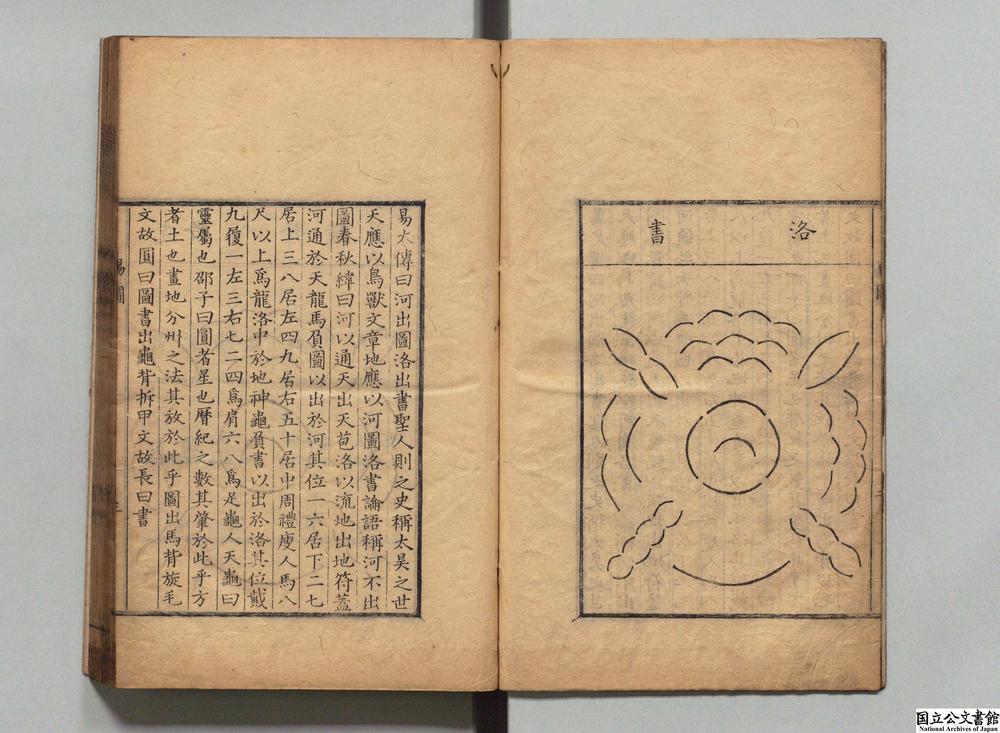 洛書
易大傳曰河出圖洛出書聖人則之史稱太昊之世
天應以鳥獸文章地應以河圖洛書論語稱河不出
圖春秋緯曰河以通天出天苞洛以流地出地符蓋
河通於天龍馬負圖以出於河其位一六居下二七
居上三八居左四九居右五十居中周禮廋人馬八
尺以上爲龍洛中於地神龜負書以出於洛其位戴
九履一左三右七二四爲肩六八爲足龜人天龜曰
靈屬也邵子曰圓者星也曆紀之數其肇於此乎方
者土也畫地分州之法其放於此乎圖出馬背旋毛
文故圓曰圖書出龜背拆甲文故長曰書
易圖
三
国立公文書館
National Archives of Japan